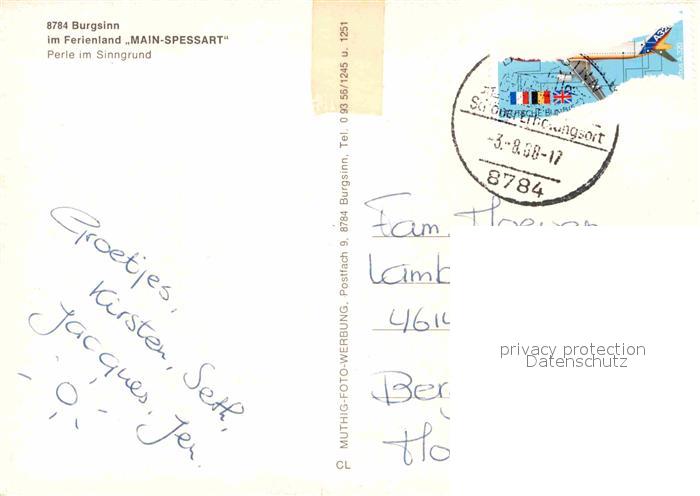 8784 Burgsinn
im Ferienland „MAIN-SPESSART"
Perle im Sinngrund
Groetjes,
Kirsten, Seth,
Jacques, Jen.
MUTHIG-FOTO-WERBUNG, Postfach 9, 8784 Burgsinn, Tel. 0 93 56/1245 u. 1251
CL
A32
Erholungsort
-3.-8.88-17
8784
Fam.
Lamb
4614
Ber
Ho
privacy protection
Datenschutz